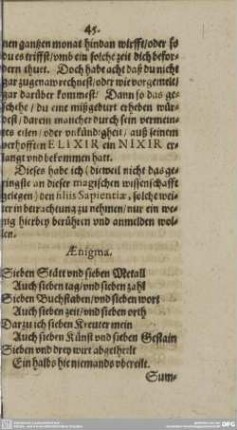 45.
nen gantzen monat hindan wirfft/oder so
du es triffst/vnd ein solche zeit dich befor-
dern thutt. Doch habe acht daß du nicht
gar zugenaw rechnest/oder wie vorgemelt/
gar darüber kommest/ Dann so das ge-
schehe/ du eine mißgeburt erheben wür-
dest/ darein mancher durch sein vermein-
tes eilen/ oder vnkündigheit/ auß seinem
verhofften ELIXIR ein NIXIR er-
langt vnd bekommen hatt.
Dieses habe ich (dieweil nicht das ge-
ringste an dieser magischen wissenschafft
gelegen) den filiis Sapientiæ, solche wei-
ter in betrachtung zu nehmen/ nur ein we-
nig hierbey berühren vnd anmelden wol-
len.
Ænigma.
Sieben Stätt vnd sieben Metall
Auch sieben tag/vnd sieben zahl
Sieben Buchstaben/vnd sieben wort
Auch sieben zeit/vnd sieben orth
Darzu ich sieben Kreuter mein
Auch sieben Künst vnd sieben Gestain
Sieben vnd drey wirt abgetheilt
Ein halbs hie niemands vbereilt.
Sum-